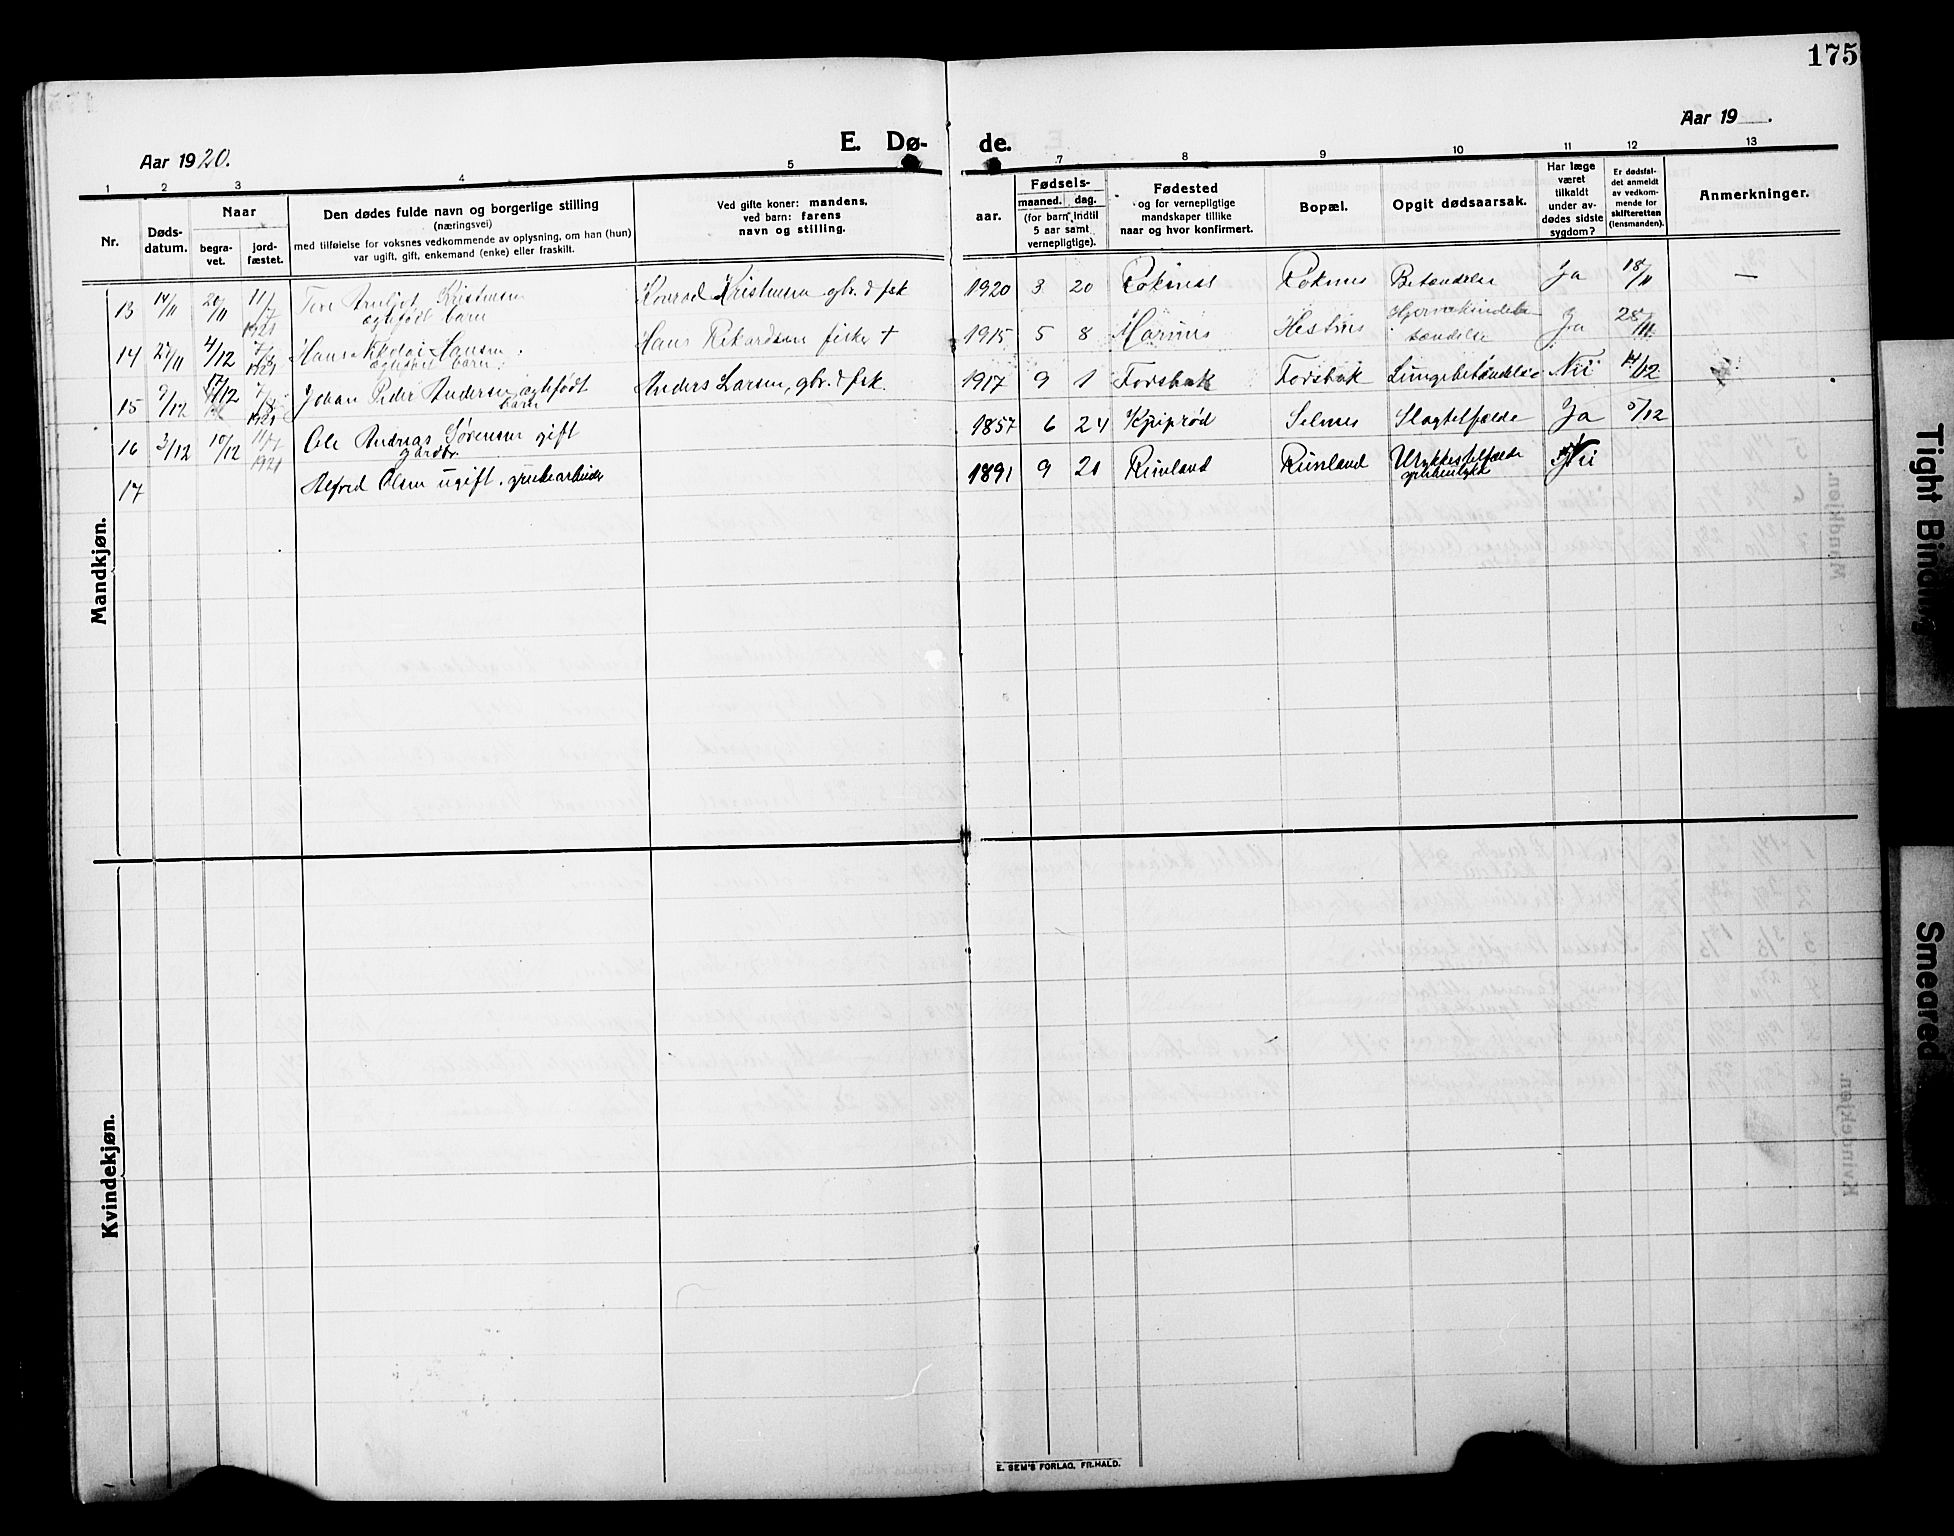 175
Aar 1920.
E. Dø-
de.
Aar 19 .
1 2 3 4 5 7 8 9 10 11 12 13
Nr.
Døds-
datum.
Naar
begra-
vet.
jord-
fæstet.
Den dødes fulde navn og borgerlige stilling
(næringsvei)
med tilføielse for voksnes vedkommende av oplysning, om han (hun)
var ugift, gift, enkemand (enke) eller fraskilt.
Ved gifte koner: mandens,
ved barn: farens
navn og stilling.
aar.
Fødsels-
maaned. dag.
(for barn indtil
5 aar samt
vernepligtige).
Fødested
og for vernepligtige
mandskaper tillike
naar og hvor konfirmert.
Bopæl.
Opgit dødsaarsak.
Har læge
været
tilkaldt
under av-
dødes sidste
sygdom?
Er dødsfal-
det anmeldt
av vedkom-
mende for
skifteretten
(lensmanden).
Anmerkninger.
13 14/11 20/11 11/7 1921 Tore Kristensen
egtefødt barn
Konrad Kristensen gbr. & fsk 1920 3 20 Røknes Røknes Betændelse Ja 18/11 —
14 27/11 4/12 1921 Hans Nikolai Hansen
egtefødt barn.
Hans Rikardsen fisker + 1915 5 8 Hestnes
tændelse Ja 28/11
15 9/12 17/12 1921 Johan Peder Andersen egtefødt
barn
Anders Larsen, gbr. & fsk. 1917 9 1 Forsbak Forsbak Lungebetændelse Nei 14/12
16 3/12 10/12 11/7 1921 Ole Andreas Sørensen gift
gardbr.
1857 6 24 Selnes Slagtilfælde Ja 5/12
17 Alfred Olsen ugift. grubearbeider
1891 9 21 Rünland Rünland Ulykkestilfælde Nei
Mandkjøn.
Kvindekjøn.
E. SEM'S FORLAG, FR.HALD.
Tight Binding
Smeared